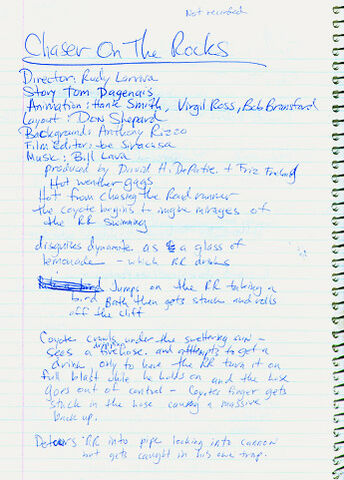 Not recorded
Chaser On The Rocks
Director: Rudy Larriva
Story Tom Dagenais
Animation: Hank Smith, Virgil Ross, Bob Bransford
Layout: Don Shepard
Backgrounds Anthony Rizzo
Film Editor: Joe Siracusa
Music: Bill Lava
produced by David H. DePatie + Friz Freleng
Hot weather gags
Hot from chasing the Road runner
the coyote begins to imagine mirages of
the RR swimming
disguises dynamite as a glass of
lemonade - which RR drinks
Jumps on the RR taking a
bird Bath then gets stuck and rolls
off the cliff
Coyote crawls under the sweltering sun -
sees a firehose. and attempts to get a
drink only to have the RR turn it on
full blast while he holds on and the hose
goes out of control - Coyotes finger gets
stuck in the hose causing a massive
back up.
Detours RR into pipe leading into cannon
but gets caught in his own trap.